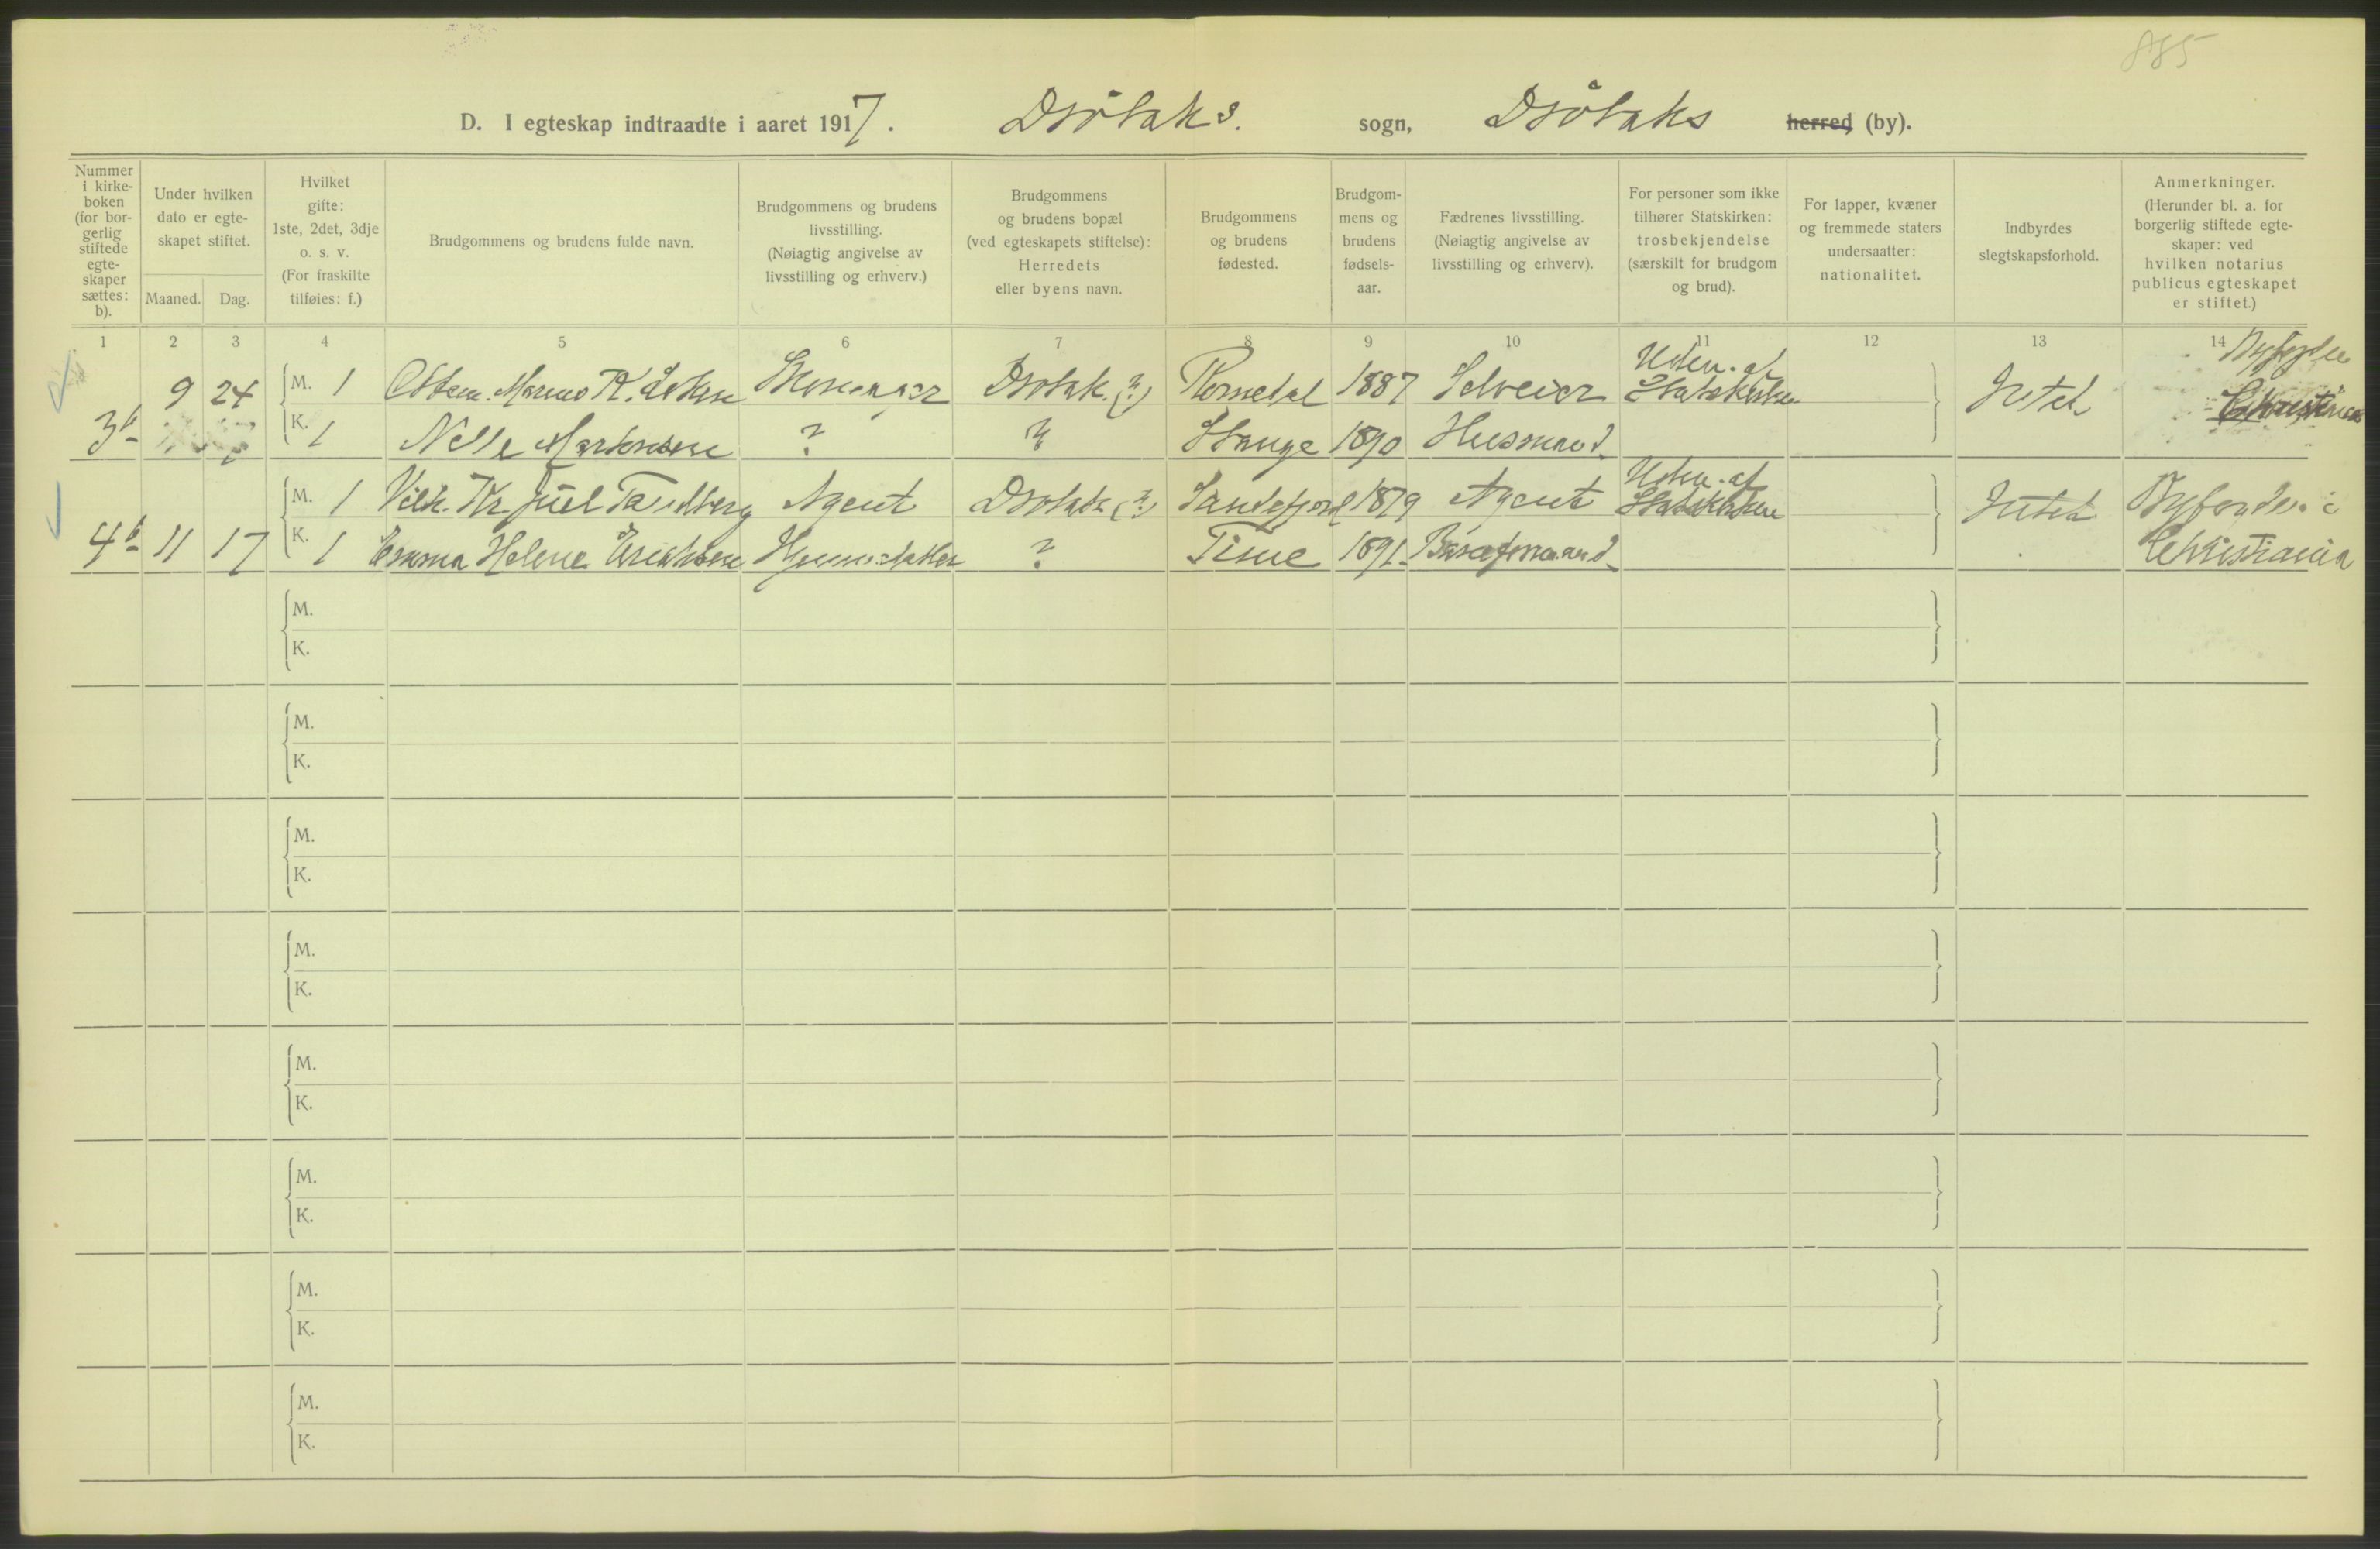 885
D. I egteskap indtraadte i aaret 1917. Drøbaks. sogn, Drøbaks herred (by).
Nummer
i kirke-
boken
(for bor-
gerlig
stiftede
egte-
skaper
sættes:
b).
Under hvilken
dato er egte-
skapet stiftet.
Maaned. Dag.
Hvilket
gifte:
1ste, 2det, 3dje
o. s. v.
(For fraskilte
tilføies: f.)
Brudgommens og brudens fulde navn.
Brudgommens og brudens
livsstilling.
(Nøiagtig angivelse av
livsstilling og erhverv.)
Brudgommens
og brudens bopæl
(ved egteskapets stiftelse):
Herredets
eller byens navn.
Brudgommens
og brudens
fødested.
Brudgom-
mens og
brudens
fødsels-
aar.
Fædrenes livsstilling.
(Nøiagtig angivelse av
livsstilling og erhverv).
For personer som ikke
tilhører Statskirken:
trosbekjendelse
(særskilt for brudgom
og brud).
For lapper, kvæner
og fremmede staters
undersaatter:
nationalitet.
Indbyrdes
slegtskapsforhold.
Anmerkninger.
(Herunder bl. a. for
borgerlig stiftede egte-
skaper: ved
hvilken notarius
publicus egteskapet
er stiftet.)
1 2 3 4 5 6 7 8 9 10 11 12 13 14
9 24 M. 1 Marius K. Drøbak (?) 1887 Selveier Uden. af Statskirken Intet Byfogden
3b K. 1 ? ? Stange 1890 Husmand Christiania
M. 1 Vilh. Kr Juel Tandberg Agent Drøbak (?) Sandefjord 1879 Agent Uden. af Statskirken Intet Byfogden i
4b 11 17 K. 1 Emma Helene Erichsen Hjemmedatter ? Time 1891 Christiania
M.
K.
M.
K.
M.
K.
M.
K.
M.
K.
M.
K.
M.
K.
M.
K.